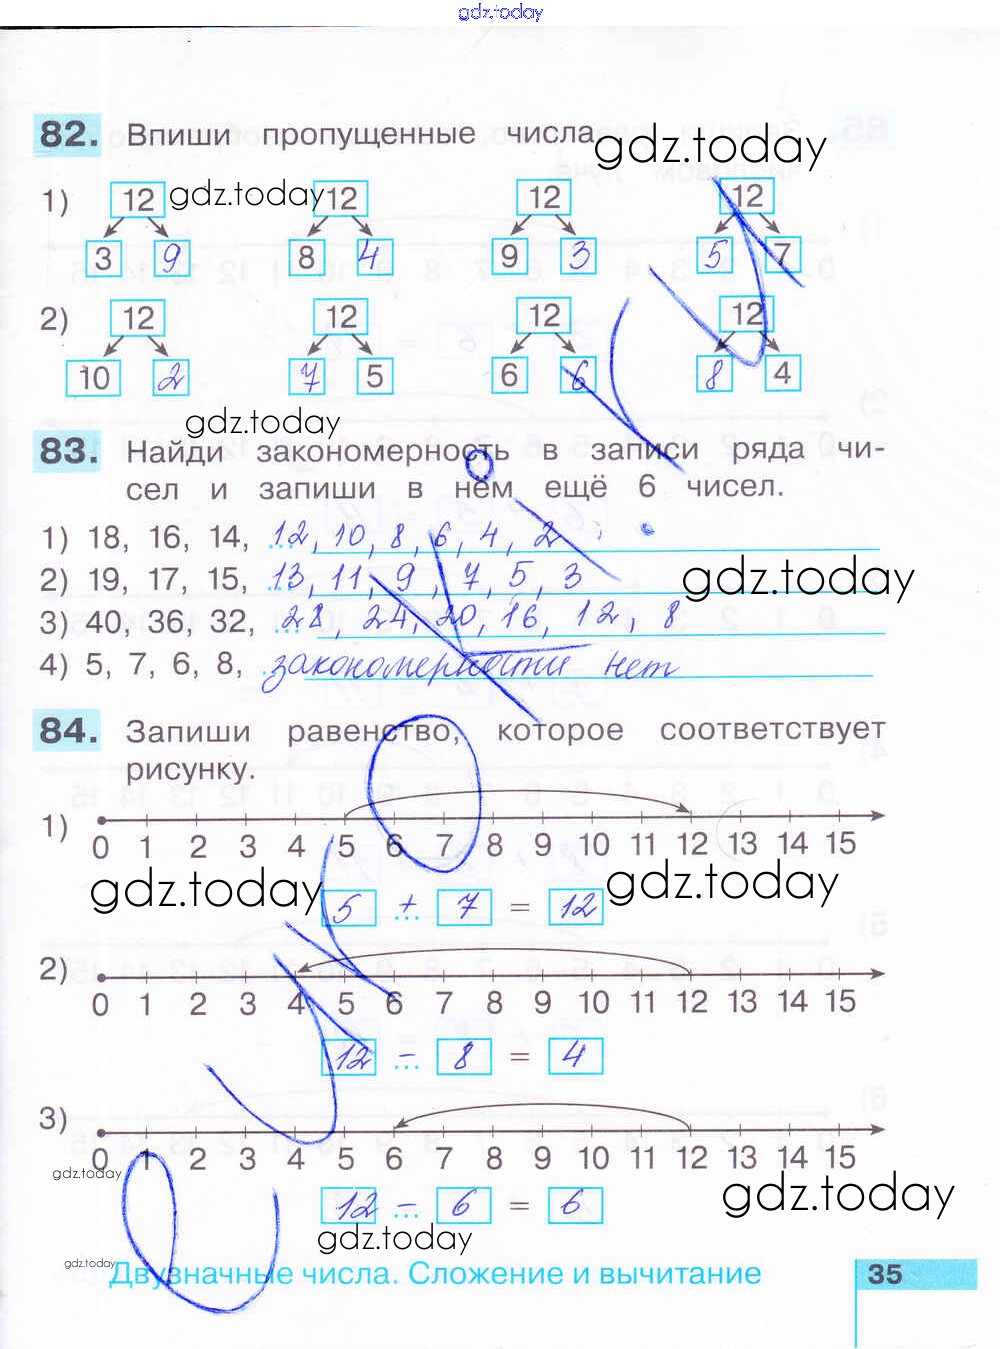 gdz.today
82. Впиши пропущенные числа
gdz.today
1) 12 gdz.today 12 12 12
3 9 8 4 9 3 5 7
2) 12 12 12 12
10 2 7 5 6 6 8 4
gdz.today
83. Найди закономерность в записи ряда чи-
сел и запиши в нём ещё 6 чисел.
1) 18, 16, 14, ... 12, 10, 8, 6, 4, 2
2) 19, 17, 15, ... 13, 11, 9, 7, 5, 3
gdz.today
3) 40, 36, 32, ... 28, 24, 20, 16, 12, 8
4) 5, 7, 6, 8, ... закономерности нет
84. Запиши равенство, которое соответствует
рисунку.
1) 0 1 2 3 4 5 6 7 8 9 10 11 12 13 14 15
gdz.today gdz.today
5 + 7 = 12
2) 0 1 2 3 4 5 6 7 8 9 10 11 12 13 14 15
12 − 8 = 4
3) 0 1 2 3 4 5 6 7 8 9 10 11 12 13 14 15
gdz.today
gdz.today
12 − 6 = 6
gdz.today
gdz.today
Двузначные числа. Сложение и вычитание 35
euroki.ru